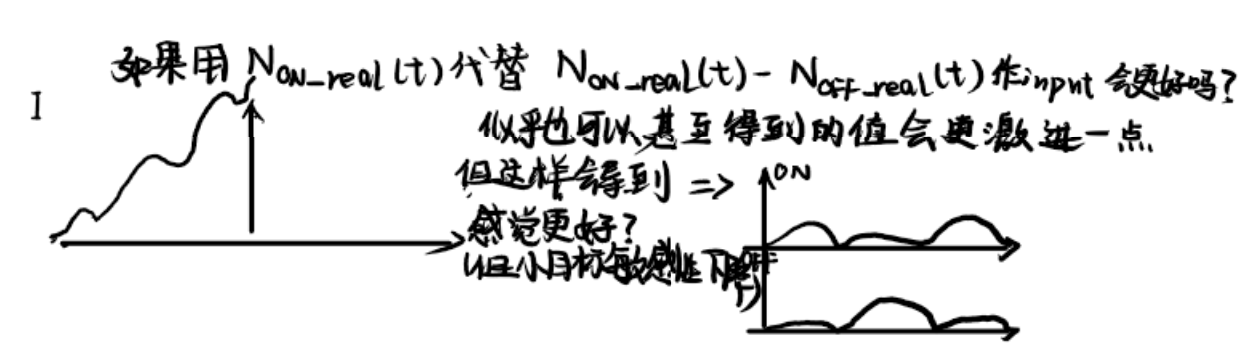 如果用 N_ON_real(t)代替 N_ON_real(t) - N_OFF_real(t)作input 会更好吗?
I
似乎也可以,甚至得到的值会更激进一点
但这样会得到 =>
ON
感觉更好?
(但小目标敏感性下降
OFF